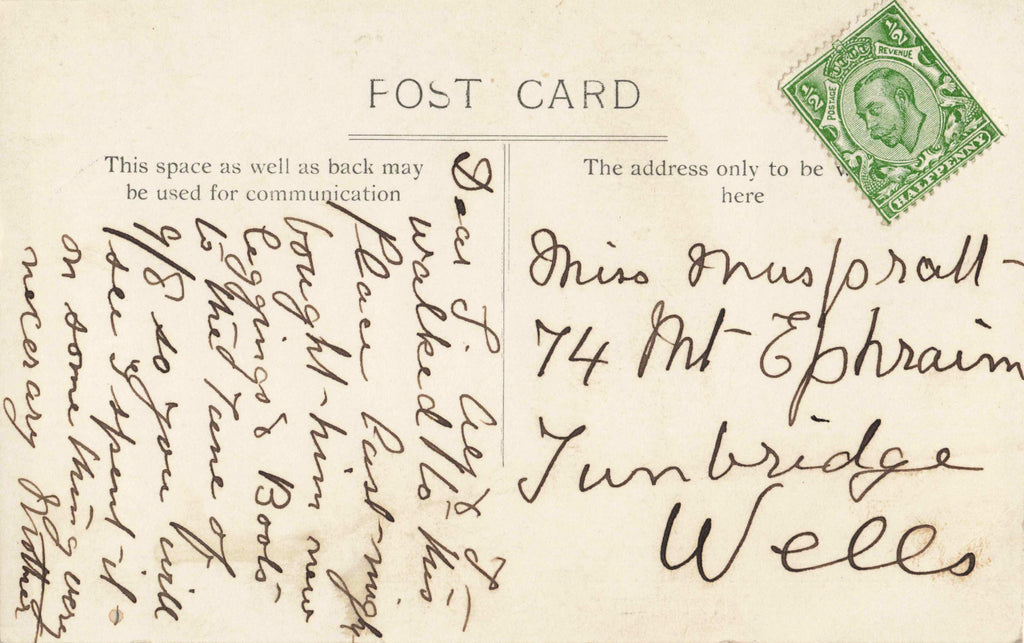 POST CARD
This space as well as back may
be used for communication
The address only to be
here
POSTAGE
REVENUE
1/2
1/2
HALFPENNY
Dear S. Alf & I
walked to his
place last nigh
bought him new
leggings & Boots
to the Tune of
9/8 so you will
see I spent it
on something very
neccerary Mother
Miss Muspratt
74 Mt Ephraim
Tunbridge
Wells